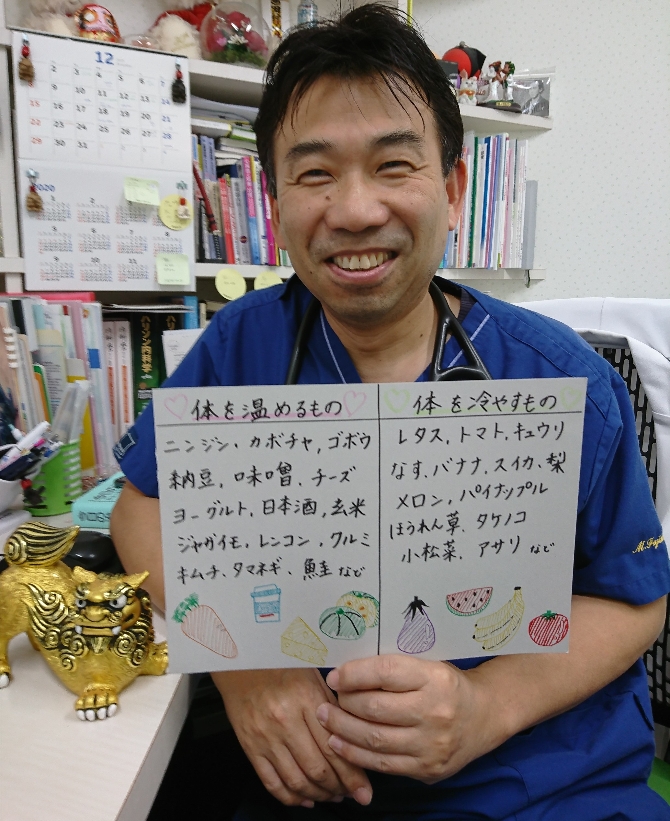 12
2020
ハリソン内科学
体を温めるもの
ニンジン、カボチャ、ゴボウ
納豆、味噌、チーズ
ヨーグルト、日本酒、玄米
ジャガイモ、レンコン、クルミ
キムチ、タマネギ、鮭など
体を冷やすもの
レタス、トマト、キュウリ
なす、バナナ、スイカ、梨
メロン、パイナップル
ほうれん草、タケノコ
小松菜、アサリなど